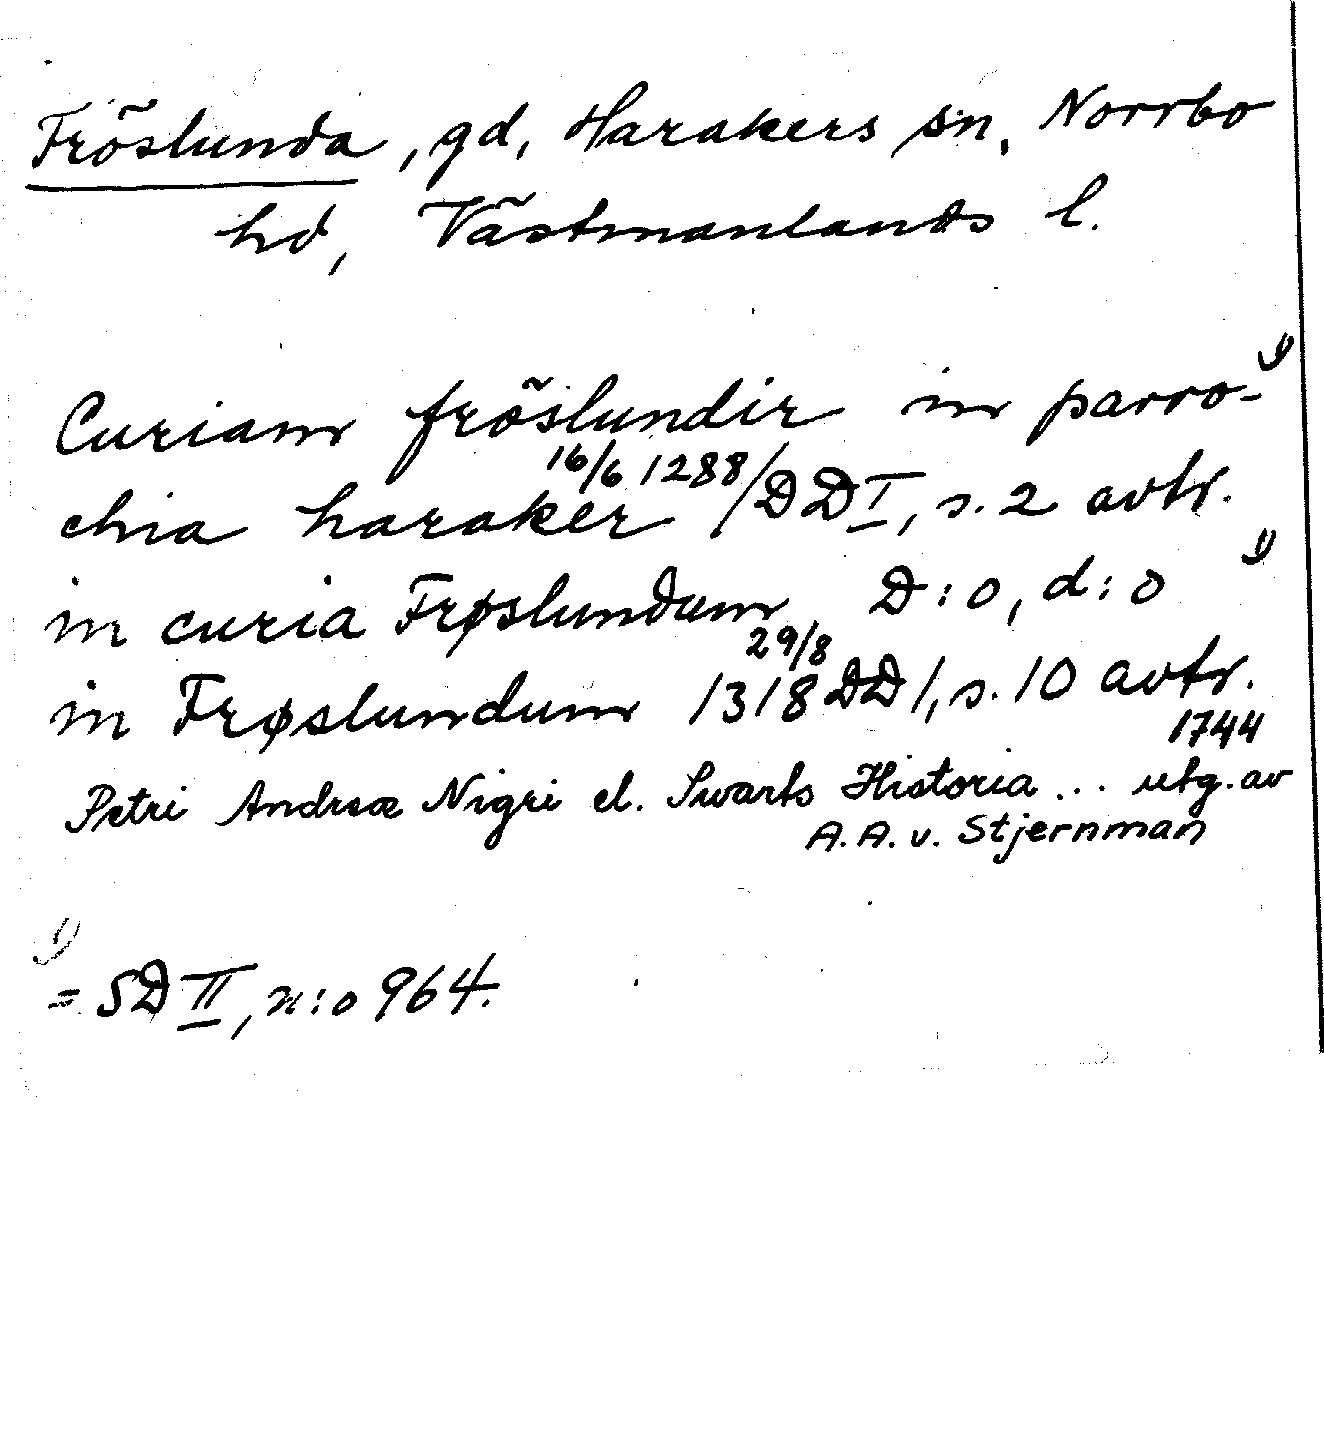 Fröslunda, gd, Harakers sn, Norrbo
hd, Västmanlands l.
Curiam fröslundir in parro- 1)
chia haraker 16/6 1288 / DD I, s. 2 avtr.
in curia Frøslundum D:o, d:o 1)
in Frøslundum 29/8 1318 DD 1, s. 10 avtr.
Petri Andreæ Nigri el. Swarts Historia ... utg. av
A. A. v. Stjernman 1744
1)
= SD II, n:o 964.